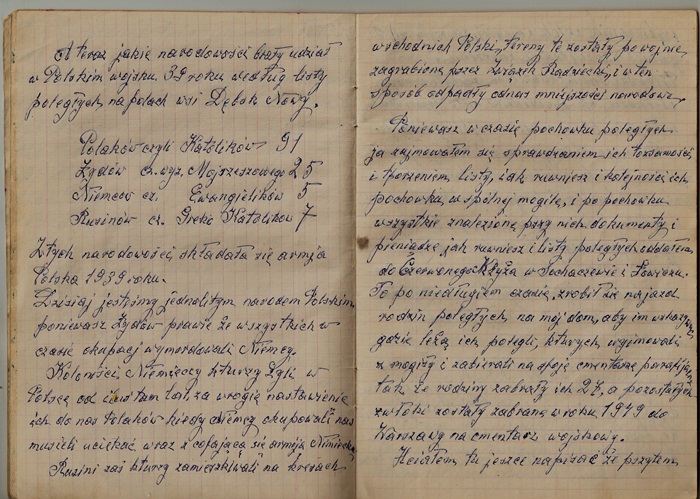 A teraz jakie narodowości brały udział
w Polskim wojsku 39 roku według listy
poległych, na polach wsi Dębsk Nowy.
Polaków czyli Katolików 91
Żydów cz. wyz. Mojrzeszowego 25
Niemców cz. Ewangielików 5
Rusinów cz. Greko Katolików 7
Z tych narodowości składała się armja
Polska 1939 roku.
Dzisiaj jesteimy jednolitym narodem Polskim
poniewasz Żydów prawie że wszystkich w
czasie okupacj wymordowali Niemcy.
Koloniści Niemieccy kturzy żyli w
Polsce od lat, za wrogie nastawienie
ich do nas Polaków kiedy Niemcy okupowali nas
musieli uciekać wraz z cofającą się armją Niemiecką
Rusini zaś kturzy zamieszkiwali na kresach
wschodnich Polski, tereny te zostały po wojnie
zagrabione przez Związek Radziecki, i w ten
sposób odpadły od nas mniejszości narodowe.
Poniewasz w czasie pochowku poległych
ja zajmowałem się sprawdzaniem ich torzsamości
i tworzeniem listy, jak ruwniesz i kolejności ich
pochowku, w spólnej mogile, i po pochowku
wszystkie znalezione przy nich dokumenty i
pieniądze jak ruwniesz i listy poległych oddałem
do Czerwonego Krzyża w Sochaczewie i Łowiczu.
To po niedługiem czasie, zrobił się najazd
rodzin poległych, na mój dom, aby im wskazać
gdzie leżą ich polegli, kturych, wyjmowali
z mogiły i zabierali na swoje cmentarze parafjalne
tak że rodziny zabrały ich 27, a pozostałych
zwłoki zostały zabrane w roku 1949 do
Warszawy na cmentarz wojskowy.
Hciałem tu jeszce napisać że przytem